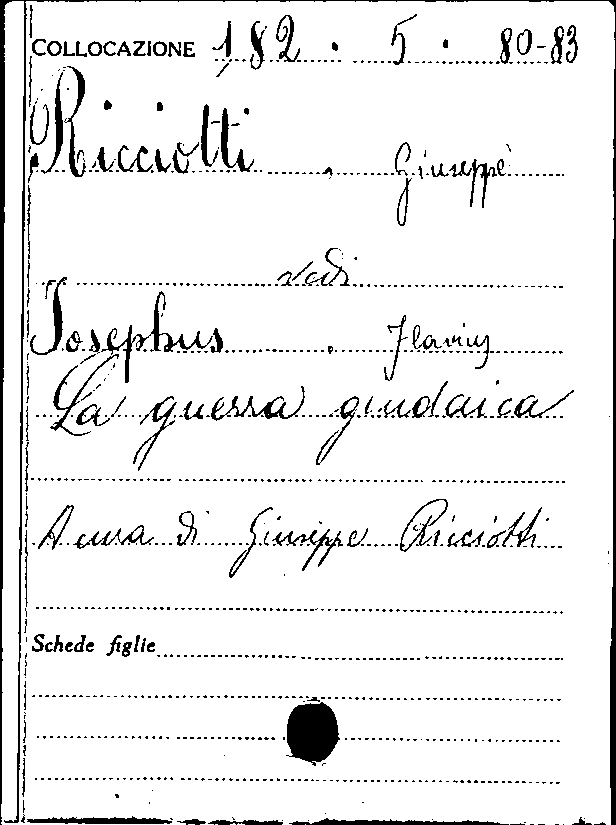 COLLOCAZIONE 182 . 5 . 80-83
Ricciotti , Giuseppe
vedi
Josephus , Flavius
La guerra giudaica
A cura di Giuseppe Ricciotti
Schede figlie